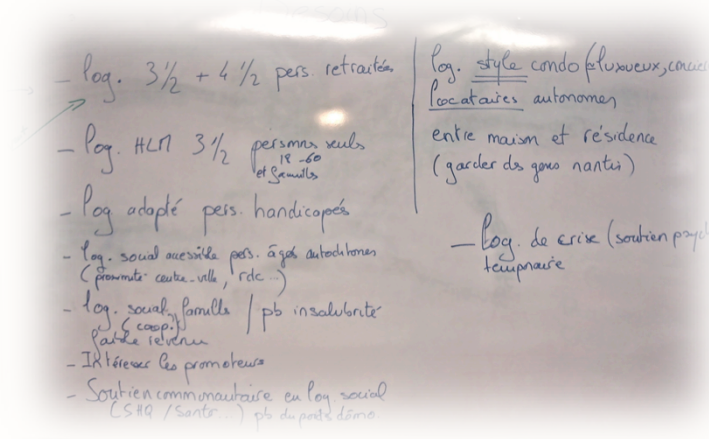 - log. 3½ + 4½ pers. retraités
- log. HLM 3½ personnes seuls
18-60
et familles
- log adapté pers. handicapés
- log. social accessible pers. âgés autochtones
(proximité centre-ville, rdc...)
- log. social famille / pb insalubrité
(coop.)
faible revenu
- Intéresser les promoteurs
- Soutien communautaire en log social
(SHQ / Santé...) pb du poids démo
log. style condo (luxueux,
locataires autonomes
entre maison et résidence
(garder ds gens nantis)
- log. de crise (soutien
temporaire